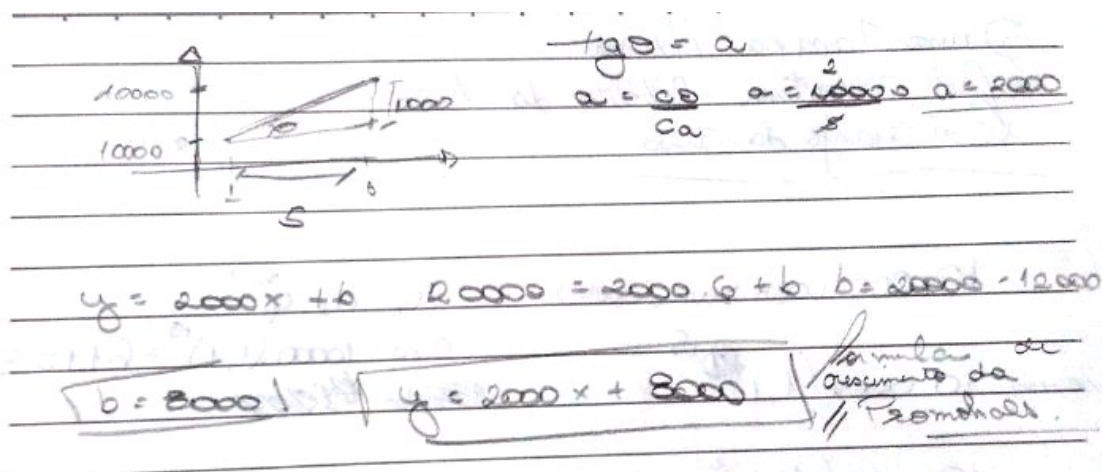 tgθ = a
20000
1000
a = co/ca a = 10000/5 2 a = 2000
θ
10000
1 6
5
y = 2000x + b 20000 = 2000.6 + b b = 20000 - 12000
b = 8000 y = 2000x + 8000 Formula de
crescimento da
// Promonals.